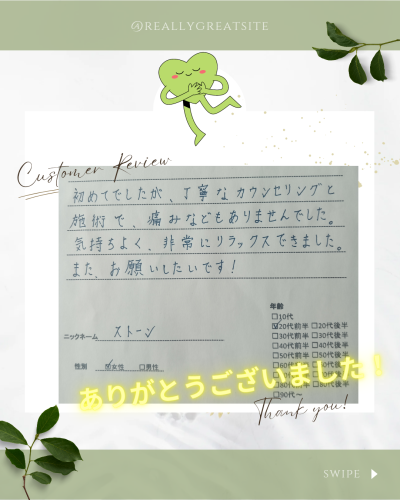 @REALLYGREATSITE
Customer Review
初めてでしたが、丁寧なカウンセリングと
施術で、痛みなどもありませんでした。
気持ちよく、非常にリラックスできました。
また、お願いしたいです！
年齢
□10代
☑20代前半 □20代後半
□30代前半 □30代後半
□40代前半 □40代後半
□50代前半 □50代後半
ニックネーム ストーン
性別 ☑女性 □男性
□90代～
ありがとうございました！
Thank you!
SWIPE